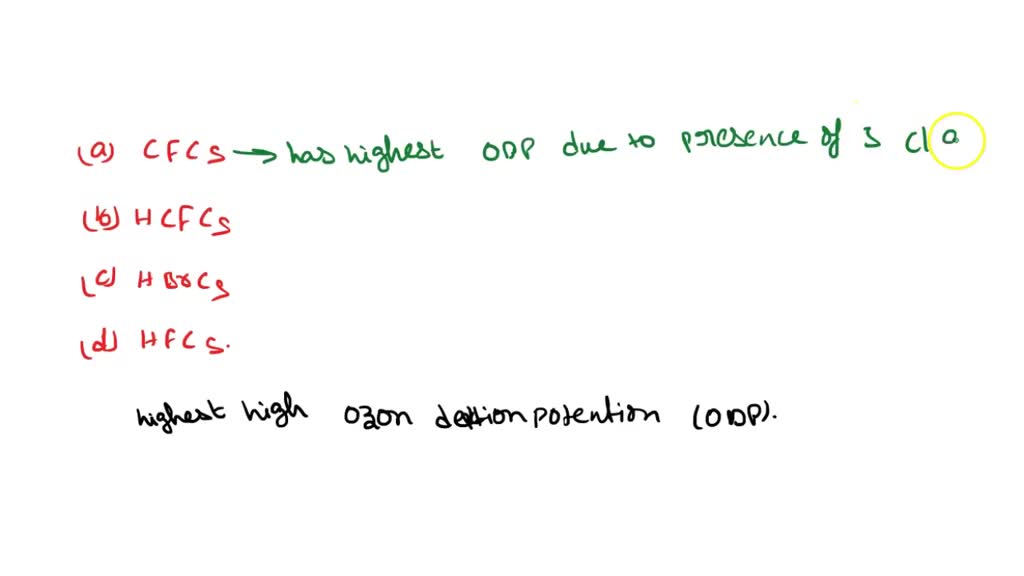 (a) CFCs → has highest ODP due to presence of 3 Cl a
(b) HCFCs
(c) HBrCs
(d) HFCs.
highest high ozon detion potention (ODP).